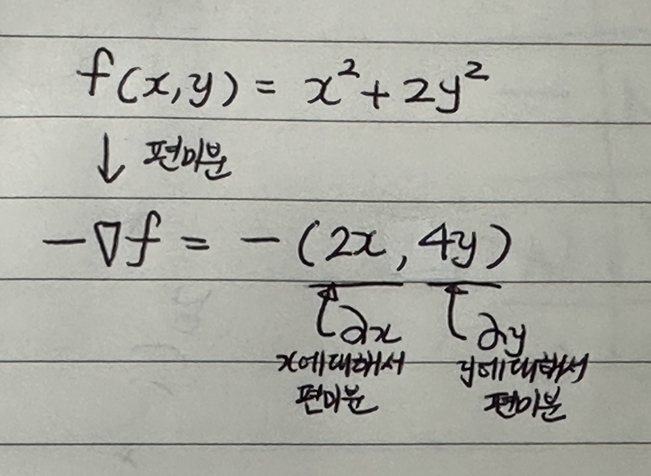 f(x,y) = x² + 2y²
↓ 편미분
-∇f = -(2x, 4y)
∂x ∂y
x에대해서 y에대해서
편미분 편미분